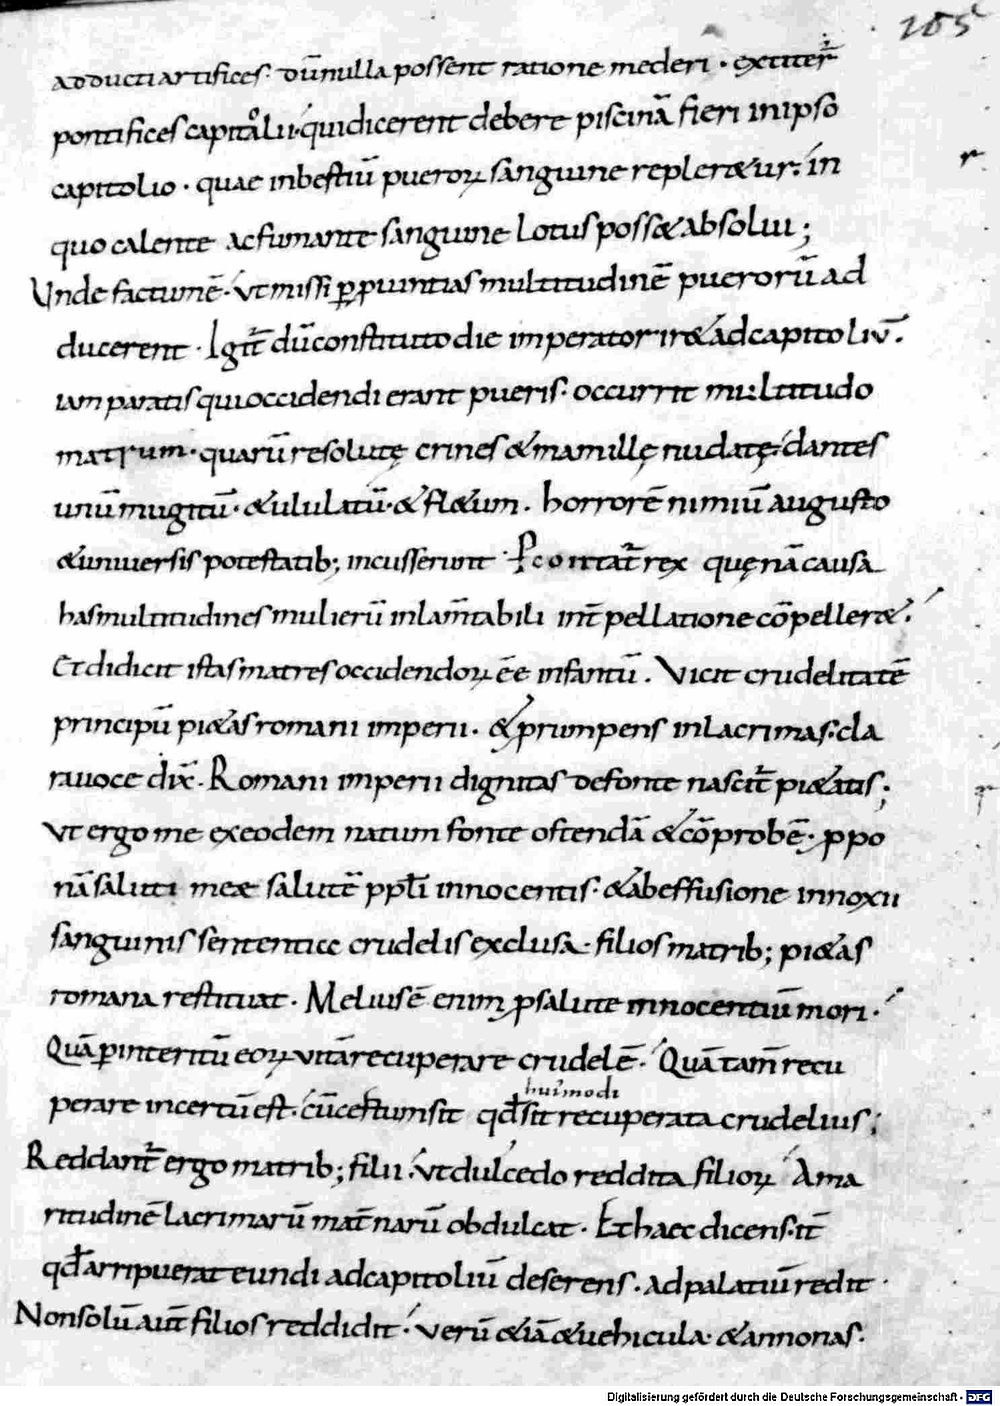 205
adducti artifices· dū nulla possent ratione mederi · extiter̄
pontifices capitolii· qui dicerent debere piscinā fieri in ipso
capitolio · quae in bestiū pueroꝝ sanguine repler&ur· in
quo calente ac fumante sanguine lotus poss& absolui;
Unde factū nē· Ut missi ꝑ puintias multitudinē puerorū ad
ducerent · Igit̄ dū constituto die imperator ir& ad capitoliū·
iam paratis qui occidendi erant pueris· occurrit multitudo
matrum · quarū resolutę crines & mamillę nudatę· dantes
unū mugitū· & ululatū· & fl&um · horrorē nimiū augusto
& uniuersis potestatib; incusserunt · Pcontat̄ rex quęnā causa
has multitudines mulierū in lam̄tabili int̄pellatione cōpeller&·
Et didicit istas matres occidendoꝝ ēē infantū · Vicit crudelitatē
principū pi&as romani imperii · & prumpens in lacrimas· cla
ra uoce dix̄· Romani imperii dignitas de fonte nascit̄ pi&atis;
Ut ergo me ex eodem natum fonte ostendā & cōprobē· ppo
nā saluti meae salutē ppłi innocentis· & ab effusione innoxii
sanguinis sententiae crudelis exclusa· filios matrib; pi&as
romana restituat · Melius ē enim p salute innocentiū mori·
Quā ꝑ interitū eoꝝ vitā recuperare crudelē· Quā tam̄ recu
perare incertū est· cū certum sit qđ sit recuperata crudelius;
hui'modi
Reddant̄ ergo matrib; filii· ut dulcedo reddita filioꝝ Ama
ritudinē lacrimarū mat̄narū obdulcat · Et haec dicens· it̄
qđ arripuerat eundi ad capitoliū deserens · ad palatiū redit ·
Non solū aut̄ filios reddidit · verū &iā & uehicula· & annonas·
Digitalisierung gefördert durch die Deutsche Forschungsgemeinschaft - DFG